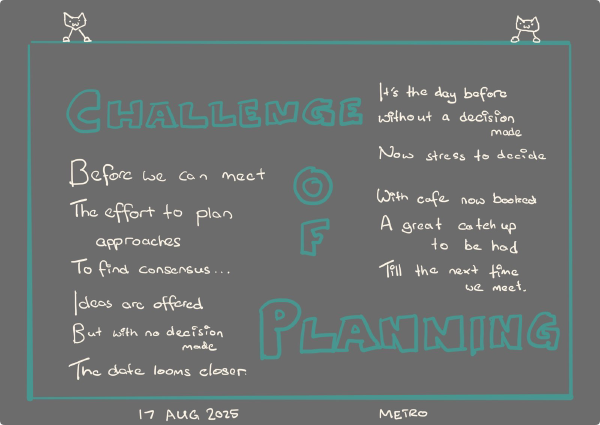 CHALLENGE
OF
PLANNING
Before we can meet
The effort to plan
approaches
To find consensus...
Ideas are offered
But with no decision
made
The date looms closer
It's the day before
without a decision
made
Now stress to decide
With cafe now booked
A great catch up
to be had
Till the next time
we meet.
17 AUG 2025
METRO